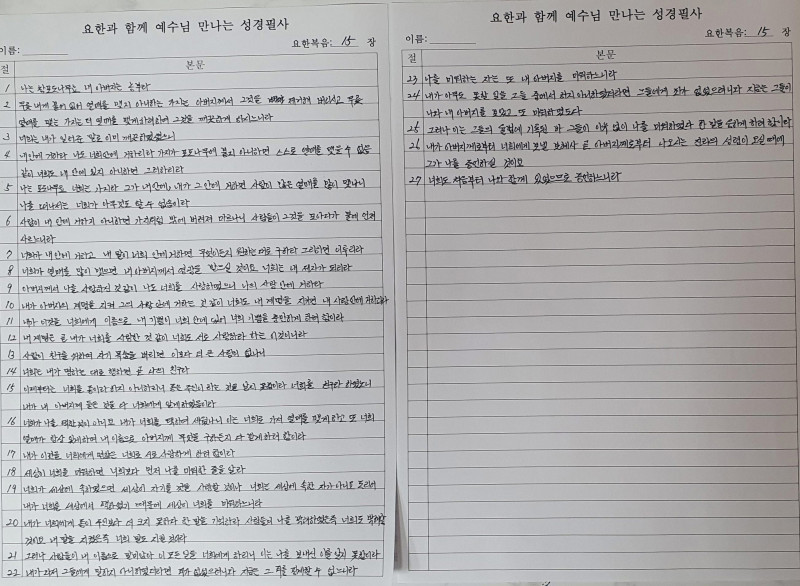 요한과 함께 예수님 만나는 성경필사
이름:
요한복음: 15 장
절 본문
1 나는 참포도나무요 내 아버지는 농부라
2 무릇 내게 붙어 있어 열매를 맺지 아니하는 가지는 아버지께서 그것을 제거해 버리시고 무릇
열매를 맺는 가지는 더 열매를 맺게 하려하여 그것을 깨끗하게 하시느니라
3 너희는 내가 일러준 말로 이미 깨끗하여졌으니
4 내 안에 거하라 나도 너희안에 거하리라 가지가 포도나무에 붙지 아니하면 스스로 열매를 맺을 수 없음
같이 너희도 내 안에 있지 아니하면 그러하리라
5 나는 포도나무요 너희는 가지라 그가 내안에, 내가 그안에 거하면 사람이 많은 열매를 맺나니
나를 떠나서는 너희가 아무것도 할 수 없음이라
6 사람이 내 안에 거하지 아니하면 가지처럼 밖에 버려져 마르나니 사람들이 그것을 모아다가 불에 던져
사르느니라
7 너희가 내 안에 거하고 내 말이 너희 안에 거하면 무엇이든지 원하는대로 구하라 그리하면 이루리라
8 너희가 열매를 많이 맺으면 내 아버지께서 영광을 받으실 것이요 너희는 내 제자가 되리라
9 아버지께서 나를 사랑하신 것 같이 나도 너희를 사랑하였으니 나의 사랑 안에 거하라
10 내가 아버지의 계명을 지켜 그의 사랑 안에 거하는 것 같이 너희도 내 계명을 지키면 내 사랑안에 거하리라
11 내가 이것을 너희에게 이름은 내 기쁨이 너희 안에 있어 너희 기쁨을 충만하게 하려 함이라
12 내 계명은 곧 내가 너희를 사랑한 것 같이 너희도 서로 사랑하라 하는 이것이니라
13 사람이 친구를 위하여 자기 목숨을 버리면 이보다 더 큰 사랑이 없나니
14 너희는 내가 명하는 대로 행하면 곧 나의 친구라
15 이제부터는 너희를 종이라 하지 아니하리니 종은 주인이 하는 것을 알지 못함이라 너희를 친구라 하였노니
내가 내 아버지께 들은 것을 다 너희에게 알게하였음이라
16 너희가 나를 택한 것이 아니요 내가 너희를 택하여 세웠나니 이는 너희로 가서 열매를 맺게하고 또 너희
열매가 항상 있게하여 내 이름으로 아버지께 무엇을 구하든지 다 받게 하려 함이라
17 내가 이것을 너희에게 명함은 너희로 서로 사랑하게 하려 함이라
18 세상이 너희를 미워하면 너희보다 먼저 나를 미워한 줄을 알라
19 너희가 세상에 속하였으면 세상이 자기의 것을 사랑할 것이나 너희는 세상에 속한 자가 아니요 도리어
내가 너희를 세상에서 택하였기 때문에 세상이 너희를 미워하느니라
20 내가 너희에게 종이 주인보다 더 크지 못하다 한 말을 기억하라 사람들이 나를 박해하였은즉 너희도 박해할
것이요 내 말을 지켰은즉 너희 말도 지킬 것이라
21 그러나 사람들이 내 이름으로 말미암아 이 모든 일을 너희에게 하리니 이는 나를 보내신 이를 알지 못함이라
22 내가 와서 그들에게 말하지 아니하였더라면 죄가 없었으려니와 지금은 그 죄를 핑계할 수 없느니라
요한과 함께 예수님 만나는 성경필사
이름:
요한복음: 15 장
절 본문
23 나를 미워하는 자는 또 내 아버지를 미워하느니라
24 내가 아무도 못한 일을 그들 중에서 하지 아니하였더라면 그들에게 죄가 없었으려니와 지금은 그들이
나와 내 아버지를 보았고 또 미워하였도다
25 그러나 이는 그들의 율법에 기록된 바 그들이 이유 없이 나를 미워하였다 한 말을 응하게 하려 함이라
26 내가 아버지께로부터 너희에게 보낼 보혜사 곧 아버지께로부터 나오시는 진리의 성령이 오실 때에
그가 나를 증언하실 것이요
27 너희도 처음부터 나와 함께 있었으므로 증언하느니라